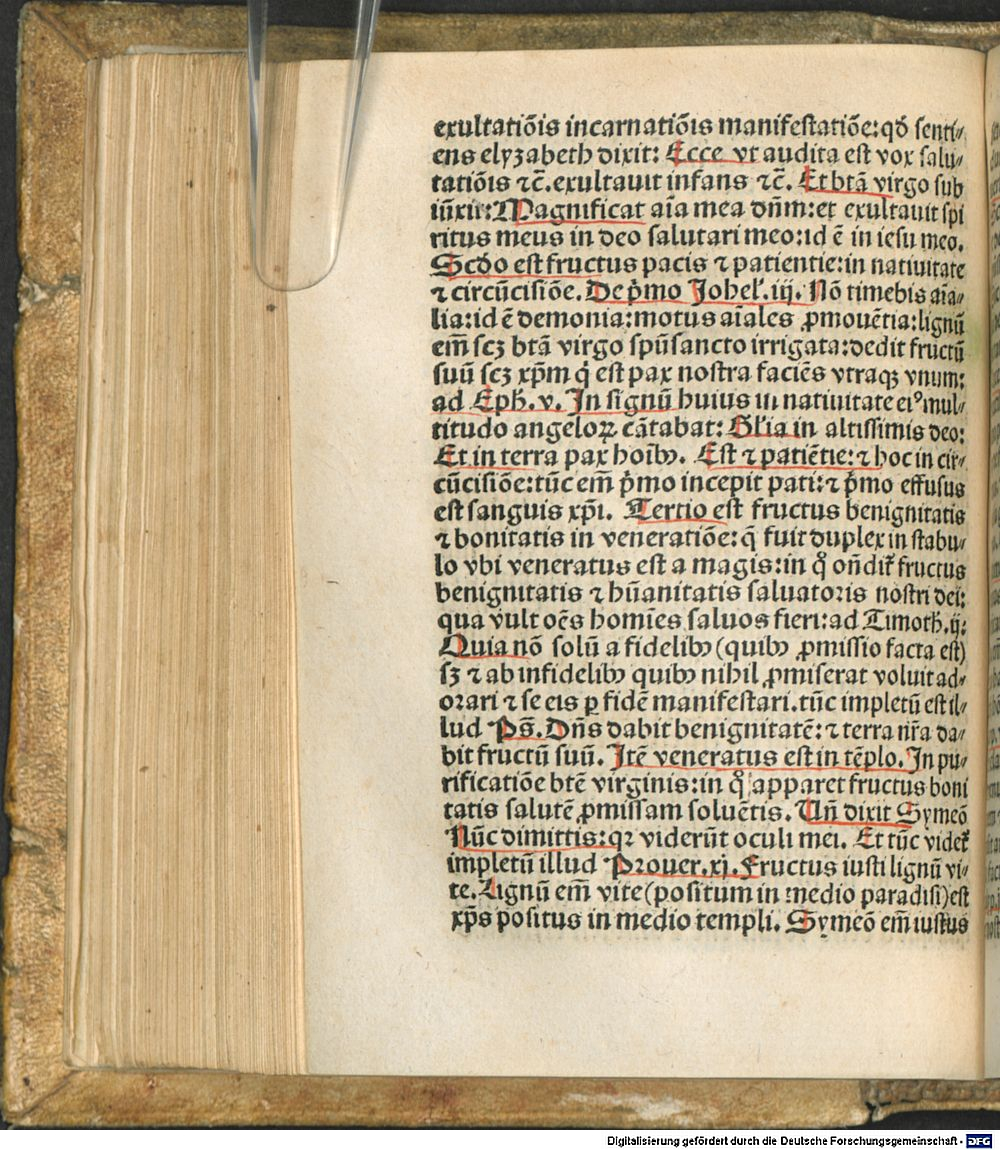 exultatiōis incarnatiōis manifestatiōe: qđ senti⸗
ens elyzabeth dixit: Ecce vt audita est vox salu⸗
tatiōis ⁊c̄. exultauit infans ⁊c̄. Et btā virgo sub
iūxit: Magnificat aīa mea dn̄m: et exultauit spi
ritus meus in deo salutari meo: id ē in iesu meo.
Scđo est fructus pacis ⁊ patientie: in natiuitate
⁊ circūcisiōe. De p̄mo Johel'. iij. Nō timebis aīa⸗
lia: id ē demonia: motus aīales ꝓmouētia: lignū
em̄ scꝫ btā virgo spūsancto irrigata: dedit fructū
suū scꝫ xp̄m q̇ est pax nostra faciēs vtraqꝫ vnum:
ad Eph̄. v. In signū huius in natiuitate eiꝰ mul⸗
titudo angeloꝝ cātabat: Gl'ia in altissimis deo:
Et in terra pax hoībꝰ. Est ⁊ patiētie: ⁊ hoc in cir⸗
cūcisiōe: tūc em̄ p̄mo incepit pati: ⁊ p̄mo effusus
est sanguis xp̄i. Tertio est fructus benignitatis
⁊ bonitatis in veneratiōe: q̄ fuit duplex in stabu⸗
lo vbi veneratus est a magis: in qͦ on̄dit᷑ fructus
benignitatis ⁊ hūanitatis saluatoris nostri dei:
qua vult oēs homīes saluos fieri: ad Timoth̄. ij:
Quia nō solū a fidelibꝰ (quibꝰ ꝓmissio facta est)
sꝫ ⁊ ab infidelibꝰ quibꝰ nihil ꝓmiserat voluit ad⸗
orari ⁊ se eis ꝑ fidē manifestari. tūc impletū est il⸗
lud Ps̄. Dn̄s dabit benignitatē: ⁊ terra nr̄a da⸗
bit fructū suū. Itē veneratus est in tēplo. In pu⸗
rificatiōe btē virginis: in qͦ apparet fructus boni
tatis salutē ꝓmissam soluētis. Vn̄ dixit Symeō
Nūc dimittis: qꝛ viderūt oculi mei. Et tūc videt᷑
impletū illud Prouer. xj. Fructus iusti lignū vi⸗
te. Lignū em̄ vite (positum in medio paradisi) est
xp̄s positus in medio templi. Symeō em̄ iustus
Digitalisierung gefördert durch die Deutsche Forschungsgemeinschaft - DFG